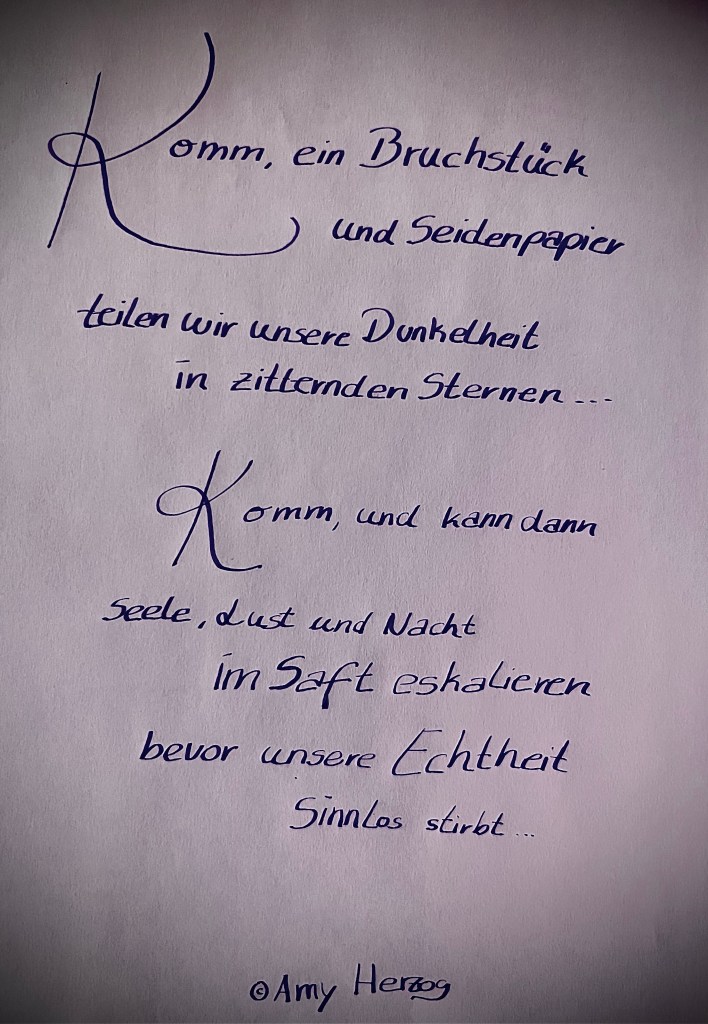 Komm, ein Bruchstück
und Seidenpapier
teilen wir unsere Dunkelheit
in zitternden Sternen...
Komm, und kann dann
Seele, Lust und Nacht
im Saft eskalieren
bevor unsere Echtheit
Sinnlos stirbt...
©Amy Herzog